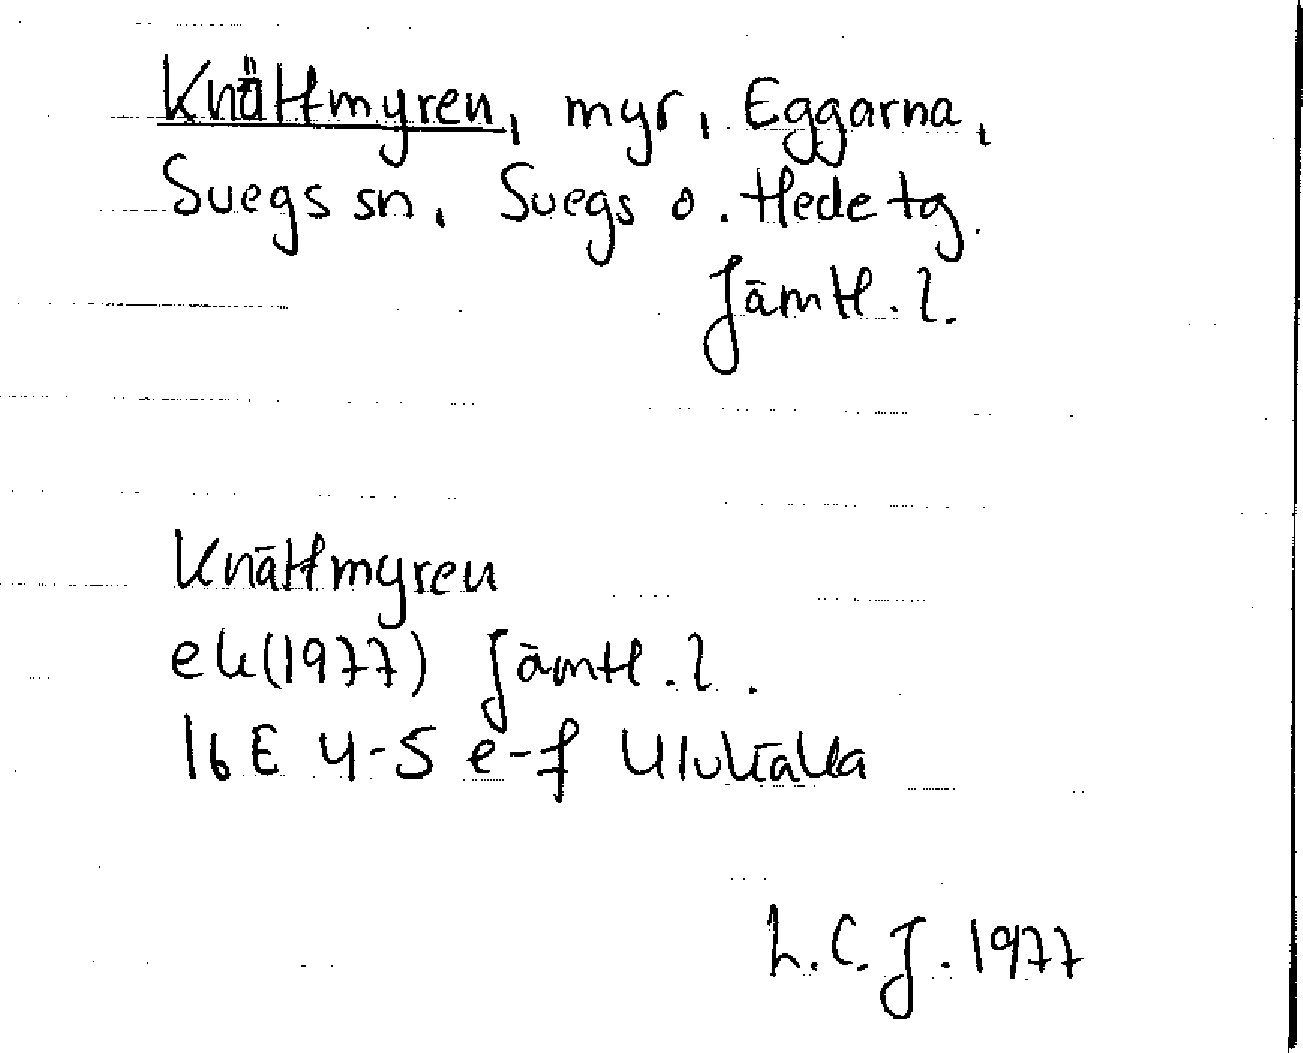 Knättmyren, myr, Eggarna,
Svegs sn, Svegs o. Hede tg.
Jämtl. l.
Knättmyren
ek(1977) Jämtl. l.
16E 4-5 e-f Ulvkälla
L.C.J. 1977